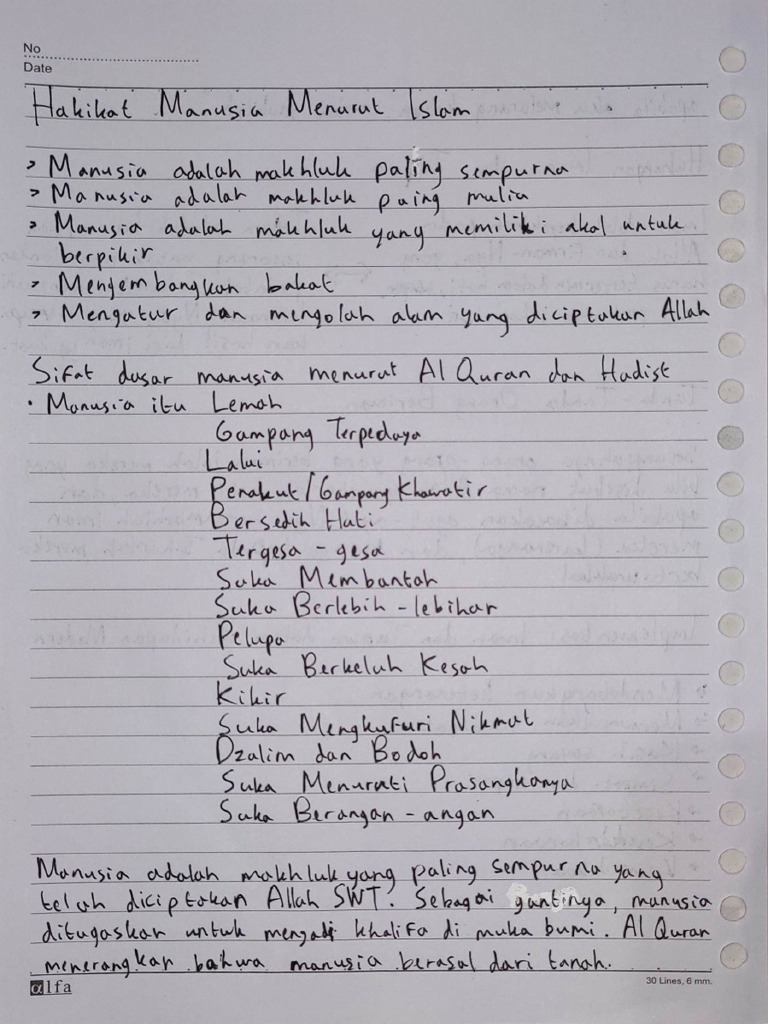 No
Date
Hakikat Manusia Menurut Islam
> Manusia adalah makhluk paling sempurna
> Manusia adalah makhluk paing mulia
> Manusia adalah makhluk yang memiliki akal untuk
berpikir
> Mengembangkan bakat
> Mengatur dan mengolah alam yang diciptakan Allah
Sifat dasar manusia menurut Al Quran dan Hadist
• Manusia itu Lemah
Gampang Terpedaya
Lalai
Penakut/Gampang Khawatir
Bersedih Hati
Tergesa - gesa
Suka Membantah
Suka Berlebih - lebihan
Pelupa
Suka Berkeluh Kesah
Kikir
Suka Mengkufuri Nikmat
Dzalim dan Bodoh
Suka Menuruti Prasangkanya
Suka Berangan - angan
Manusia adalah makhluk yang paling sempurna yang
telah diciptakan Allah SWT. Sebagai gantinya, manusia
ditugaskan untuk menjadi khalifa di muka bumi. Al Quran
menerangkan bahwa manusia berasal dari tanah.
αlfa
30 Lines, 6 mm.